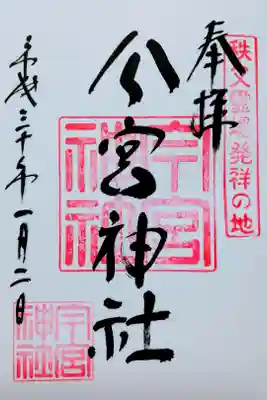 秩父霊場発祥の地
奉拝
今宮神社
平成三十年一月二日
今宮神社
今宮神社